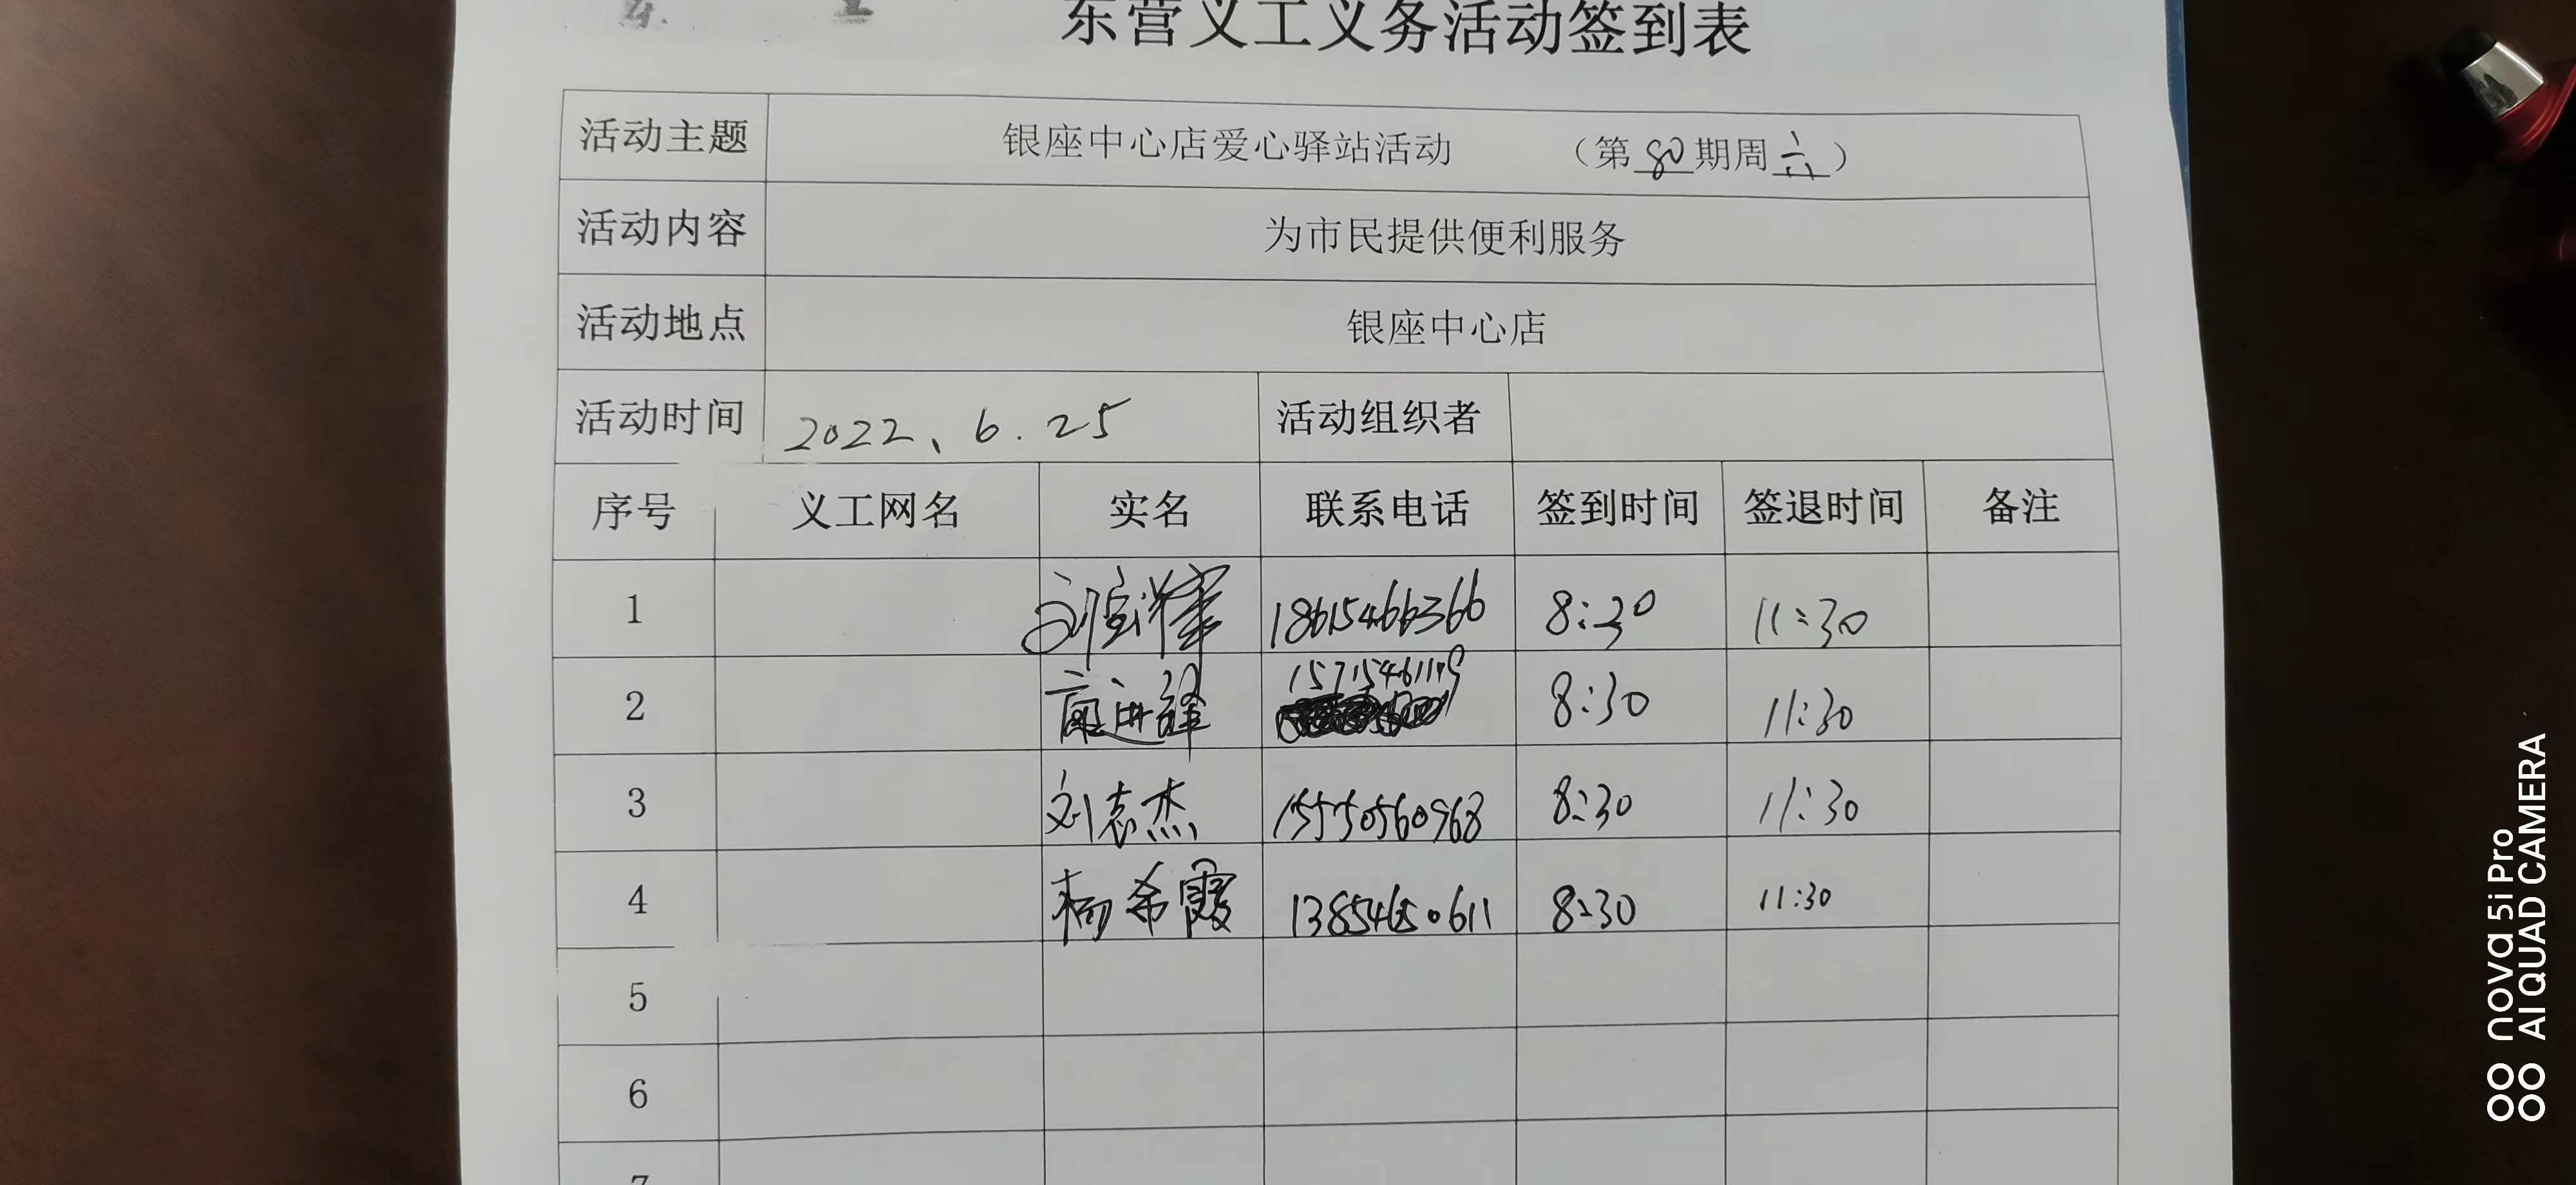 东营义工义务活动签到表
活动主题 银座中心店爱心驿站活动 （第80期周六）
活动内容 为市民提供便利服务
活动地点 银座中心店
活动时间 2022、6.25 活动组织者
序号 义工网名 实名 联系电话 签到时间 签退时间 备注
1 18615466366 8:30 11:30
2 8:30 11:30
3 刘志杰 15550560968 8:30 11:30
4 杨希霞 13854650611 8:30 11:30
5
6
7
nova 5i Pro
AI QUAD CAMERA